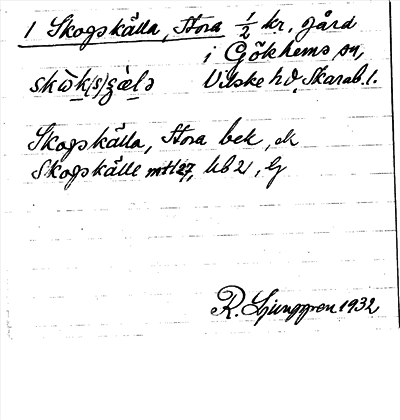 1 Skogskälla, Stora 1/2 kr. gård
i Gökhems sn,
Vilske hd. Skarab. l.
Skogskälla, Stora bek, dk
Skogskälle mtl 27, hb 21, Lj
R. Ljunggren 1932